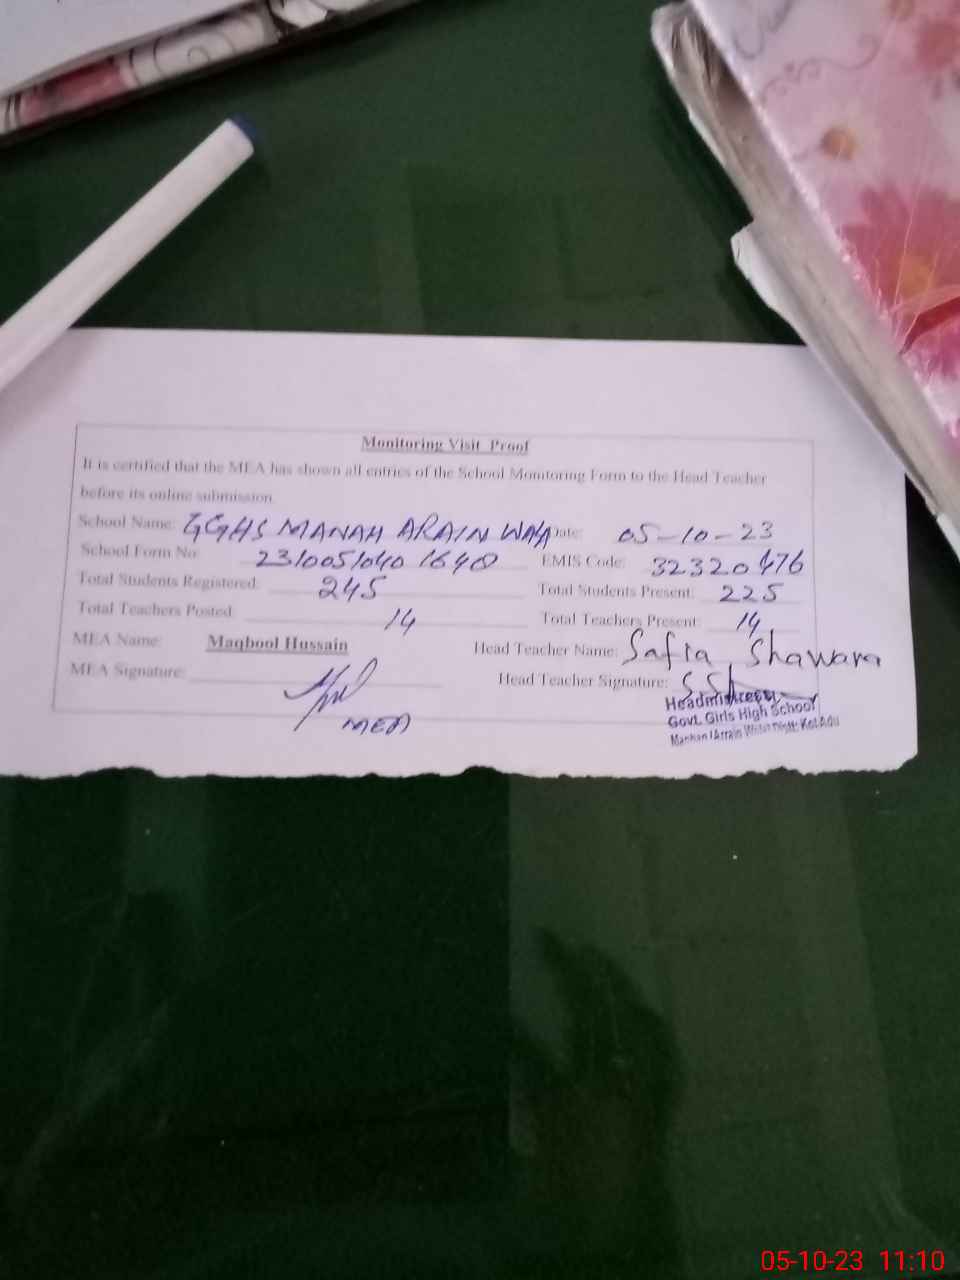 Monitoring Visit Proof
It is certified that the MEA has shown all entries of the School Monitoring Form to the Head Teacher
before its online submission.
School Name: GGHS MANAH ARAIN WALA Date: 05-10-23
School Form No: 2310051040 1640 EMIS Code: 32320476
Total Students Registered: 245 Total Students Present: 225
Total Teachers Posted: 14 Total Teachers Present: 14
MEA Name: Maqbool Hussain Head Teacher Name: Safia Shawara
MEA Signature: Head Teacher Signature:
MEA
Headmistress
Govt. Girls High School
Kot Adu
05-10-23 11:10